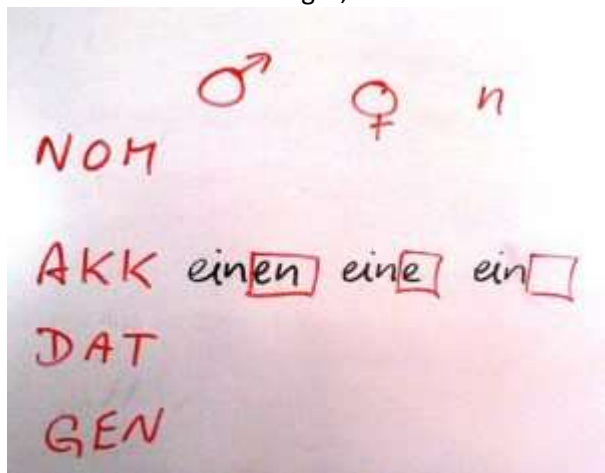 ♂ ♀ n
NOM
AKK einen eine ein
DAT
GEN